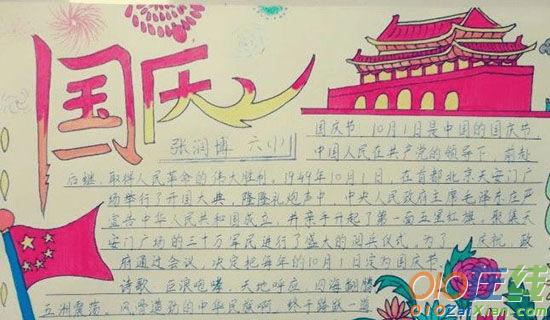 国庆
张润博 六(11)
国庆节，10月1日是中国的国庆节，
中国人民在共产党的领导下，前赴
后继，取得人民革命的伟大胜利，1949年10月1日，在首都北京天安门广
场举行了开国大典，隆隆礼炮声中，中央人民政府主席毛泽东庄严
宣告中华人民共和国成立，并亲手升起了第一面五星红旗，聚集天
安门广场的三十万军民进行了盛大的阅兵仪式，为了 庆祝，政
府通过会议，决定把每年的10月1日定为国庆节。
诗歌，巨浪咆哮，天地呼应，四海翻腾
五洲震荡，风雪造就的中华民族啊，终于踏跃一道
在线
ZaiXian.com